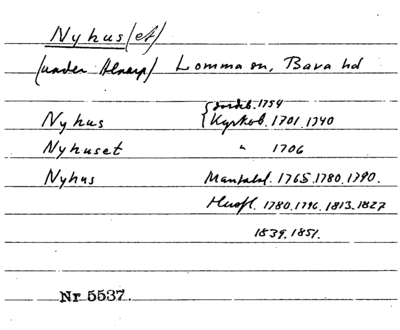 Nyhus(et)
(under Alnarp) Lomma sn, Bara hd
Jordeb. 1754
Nyhus Kyrkob. 1701.1740
Nyhuset " 1706
Nyhus Mantalsl. 1765.1780.1790.
Husfl. 1780.1796.1813.1827
1839.1851.
Nr 5537.